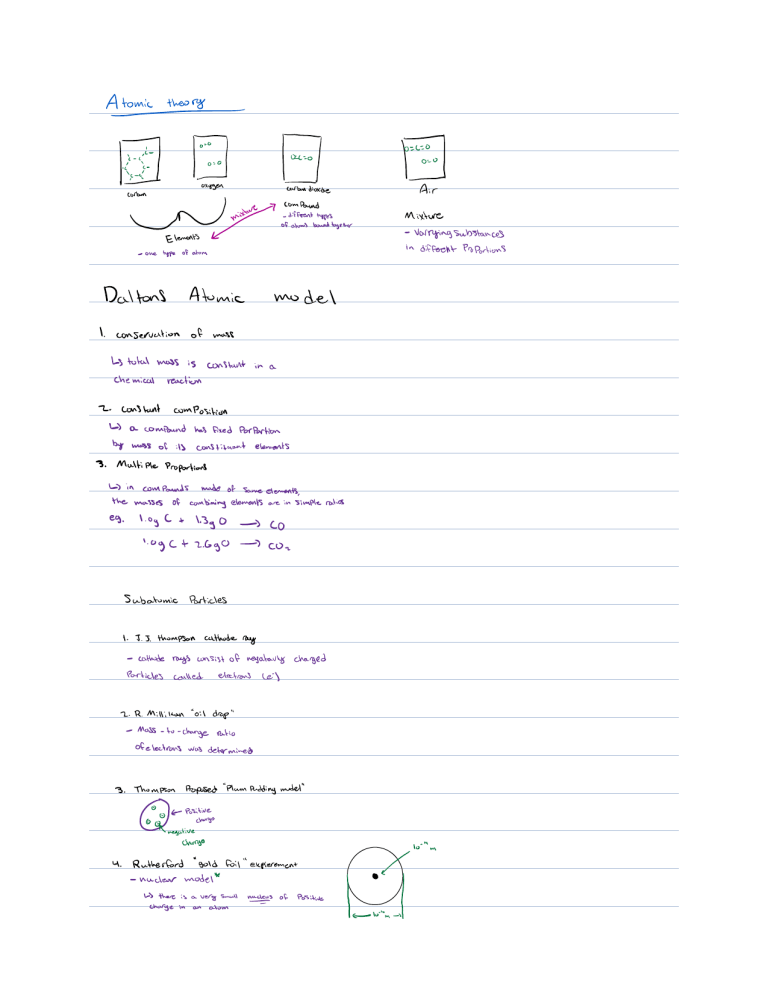 Atomic theory
o=o
o=o
O=C=O
O=C=O
o=o
carbon
oxygen
carbon dioxide
Air
compound
mixture
- different types
of atoms bound together
Mixture
- Varrying substances
in different Proportions
Elements
- one type of atom
Daltons Atomic model
1. conservation of mass
↳ total mass is constant in a
chemical reaction
2. Constant comPosition
↳ a compound has fixed ParPortion
by mass of its constituant elements
3. Multiple Proportions
↳ in comPounds made of same elements,
the masses of combining elements are in simple ratios
eg. 1.0g C + 1.3g O → CO
1.0g C + 2.6g O → CO₂
Subatomic Particles
1. J.J. thompson cathode ray
- cathode rays consist of negatavly charged
Particles called elections (e⁻)
2. R. Millikan "oil drop"
- Mass-to-charge ratio
of electrons was determined
3. Thompson Proposed "Plum Pudding model"
Positive
charge
negative
charge
4. Rutherford "gold foil" experement
- nuclear model*
↳ there is a very small nucleus of Positive
charge in an atom